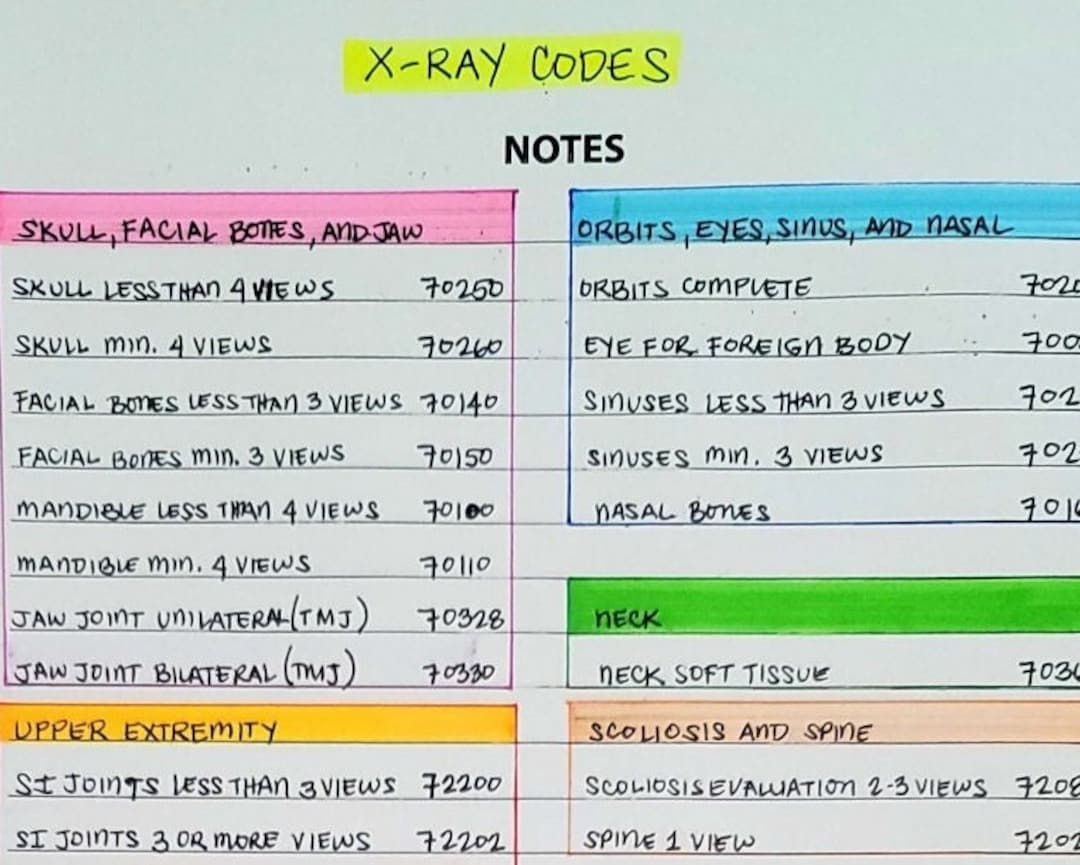 X-RAY CODES
NOTES
SKULL, FACIAL BONES, AND JAW
SKULL LESS THAN 4 VIEWS 70250
SKULL MIN. 4 VIEWS 70260
FACIAL BONES LESS THAN 3 VIEWS 70140
FACIAL BONES MIN. 3 VIEWS 70150
MANDIBLE LESS THAN 4 VIEWS 70100
MANDIBLE MIN. 4 VIEWS 70110
JAW JOINT UNILATERAL (TMJ) 70328
JAW JOINT BILATERAL (TMJ) 70330
UPPER EXTREMITY
SI JOINTS LESS THAN 3 VIEWS 72200
SI JOINTS 3 OR MORE VIEWS 72202
ORBITS, EYES, SINUS, AND NASAL
ORBITS COMPLETE
EYE FOR FOREIGN BODY
SINUSES LESS THAN 3 VIEWS
SINUSES MIN. 3 VIEWS
NASAL BONES
NECK
NECK SOFT TISSUE
SCOLIOSIS AND SPINE
SCOLIOSIS EVALUATION 2-3 VIEWS
SPINE 1 VIEW